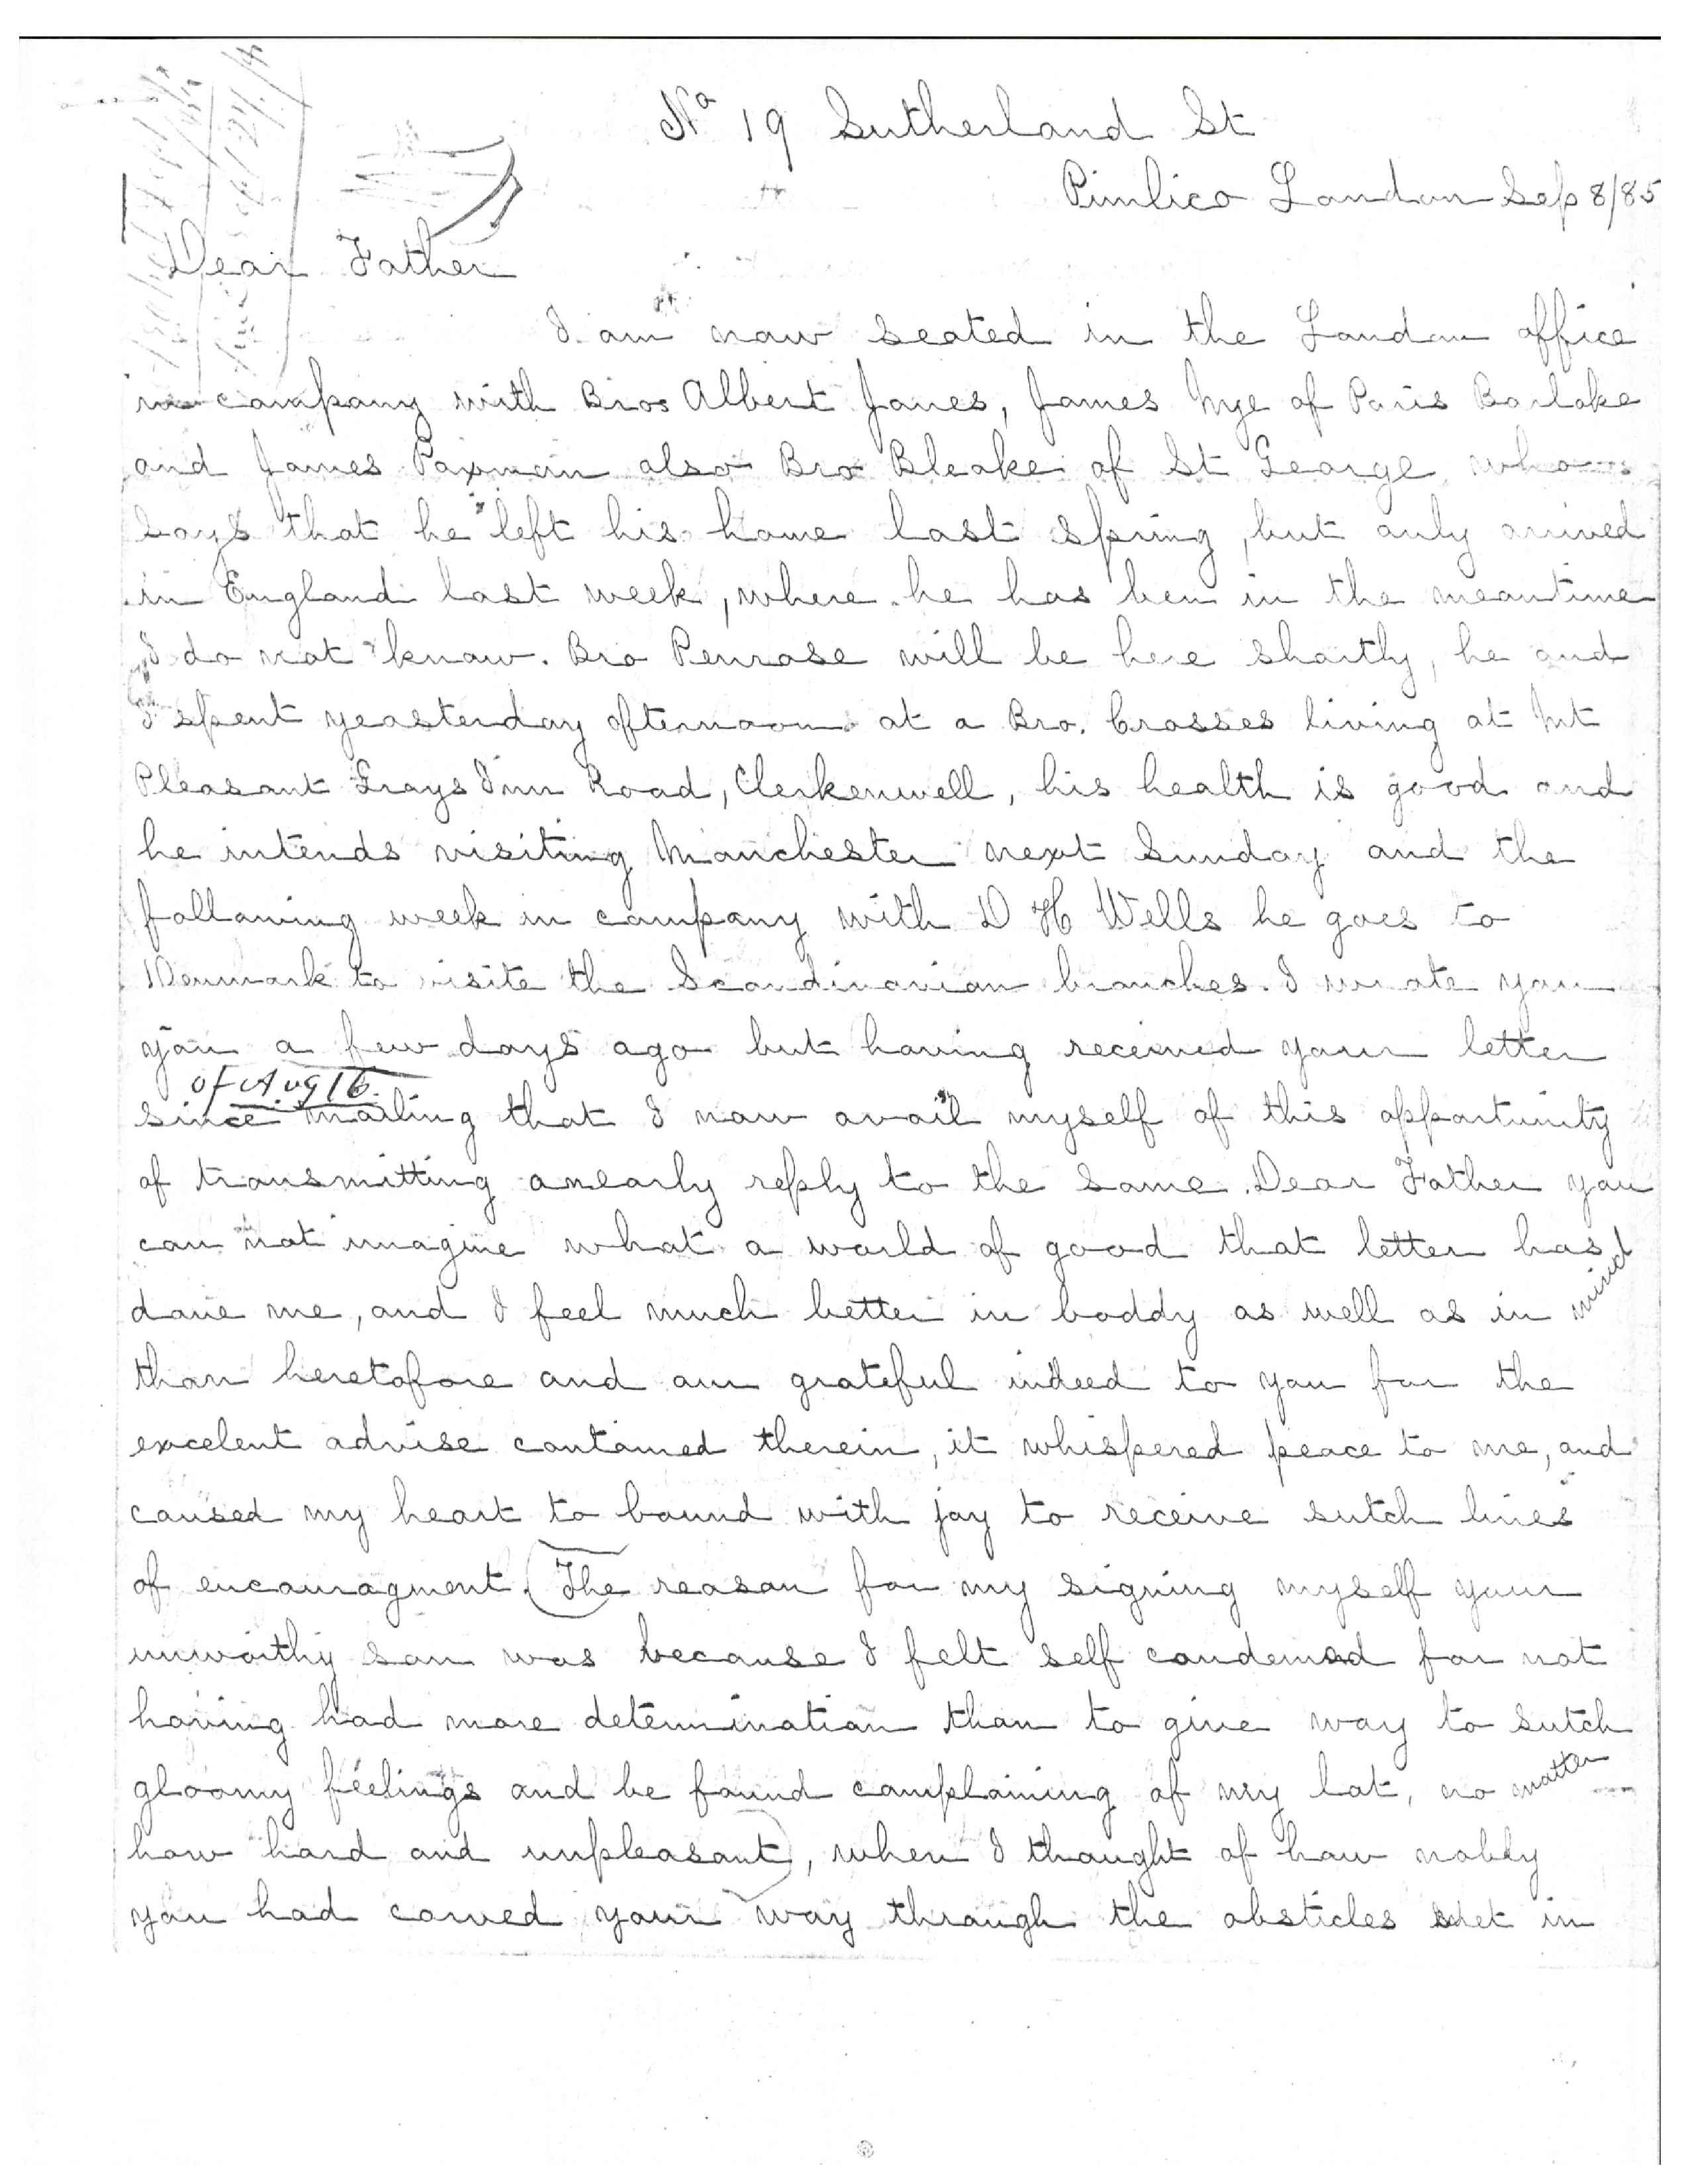 No 19 Sutherland St
Pimlico London Sep 8/85
Dear Father
I am now seated in the London office
in company with Bros Albert Jones, James Nye of Paris Barlake
and James Paxman also Bro Bleake of St George who
says that he left his home last spring, but only arrived
in England last week, where he has ben in the meantime
I do not know. Bro Penrose will be here shortly, he and
I spent yeasterday afternoon at a Bro. Crosses living at Mt
Pleasant Grays Inn Road, Clerkenwell, his health is good and
he intends visiting Manchester next Sunday and the
following week in company with D H Wells he goes to
Denmark to visite the Scandinavian branches. I wrote you
you a few days ago but having received your letter
of Aug 16.
since mailing that I now avail myself of this opportunity
of transmitting an early reply to the same. Dear Father you
can not imagine what a world of good that letter has
done me, and I feel much better in boddy as well as in mind
than heretofore and am grateful indeed to you for the
excelent advise contained therein, it whispered peace to me, and
caused my heart to bound with joy to receive sutch lines
of encouragment. (The reason for my signing myself your
unworthy son was because I felt self condemed for not
having had more determination than to give way to sutch
gloomy feelings and be found complaining of my lot, no matter
how hard and unpleasant), when I thought of how nobly
you had carved your way through the obsticles set in